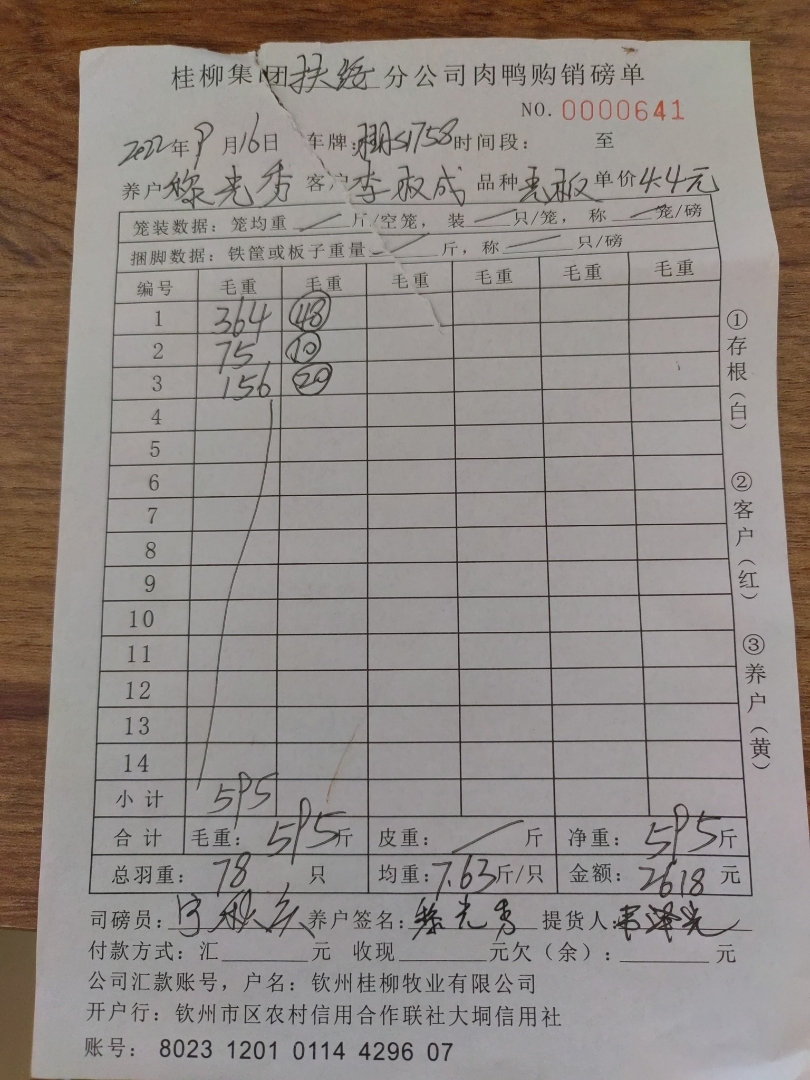 桂柳集团扶绥分公司肉鸭购销磅单
NO. 0000641
2022年9月16日 车牌: 时间段: 至
养户 光秀 客户 李 成 品种 单价 4.4元
笼装数据: 笼均重 斤/空笼, 装 只/笼, 称 笼/磅
捆脚数据: 铁筐或板子重量 斤, 称 只/磅
编号 毛重 毛重 毛重 毛重 毛重 毛重
1 364 48
2 75 10
3 156 20
4
5
6
7
8
9
10
11
12
13
14
小计 595
合计 毛重: 595斤 皮重: 斤 净重: 595斤
总羽重: 78 只 均重: 7.63斤/只 金额: 2618 元
司磅员: 养户签名: 光秀 提货人:
付款方式: 汇 元 收现 元欠(余): 元
公司汇款账号, 户名: 钦州桂柳牧业有限公司
开户行: 钦州市区农村信用合作联社大垌信用社
账号: 8023 1201 0114 4296 07
①存根(白)
②客户(红)
③养户(黄)